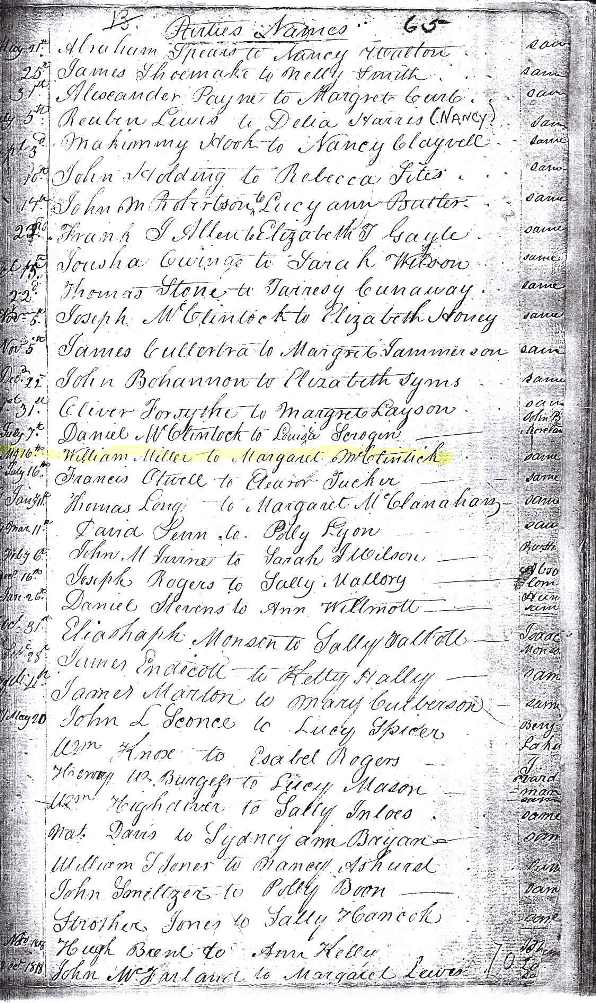 13 Parties Names 65
May 21st Abraham Spears to Nancy Hutton same
25th James Shoemake to Nelly Smith same
31st Alexander Payne to Margret Curb same
5th Reuben Lewis to Delia Harris (NANCY) same
3d Makimmy Hook to Nancy Claypell same
10th John Holding to Rebecca Sites same
14th John M Robertson to Lucy ann Butler same
23d Frank J Allen to Elizabeth T Gayle same
Jousha Ewings to Sarah Wilson same
22d Thomas Stone to Tarresy Cunaway same
Nov 5th Joseph McClintock to Elizabeth Honey same
Nov 5th James to Margret Jammerson same
Dec 22d John Bohannon to Elizabeth Syms same
31st Oliver Forsythe to Margret Layson same
July 7th Daniel McClintock to Louiza Scrogin John B
16th William Miller to Margaret McClintick same
July 16th Francis Otwell to Eleanor Tucker same
Jan 31st Thomas Long to Margaret McClanahan same
Mar 11th David Penn to Polly Lyon same
6th John M Irvine to Sarah J Wilson
16th Joseph Rogers to Sally Mallory
Jan 26th Daniel Stevens to Ann Willmott
Oct 31st Eliashaph Monsen to Sally Talbott Isaac
25th James Endicott to Ketty Hally same
James Marton to Mary Culberson same
May 20 John L Sconce to Lucy Spicer Benj
Wm Knox to Esabel Rogers
Henry W. Burgess to Lucy Mason
Wm Highdiver to Sally Inloes same
Nat. Davis to Sydney ann Bryan same
William T Jones to Nancy Ashurst
John Smeltzer to Polly Boon same
Strother Jones to Sally Hancok same
Nov 1818 Hugh Brent to Ann Kelly
Dec 1818 John McFarland to Margaret Lewis